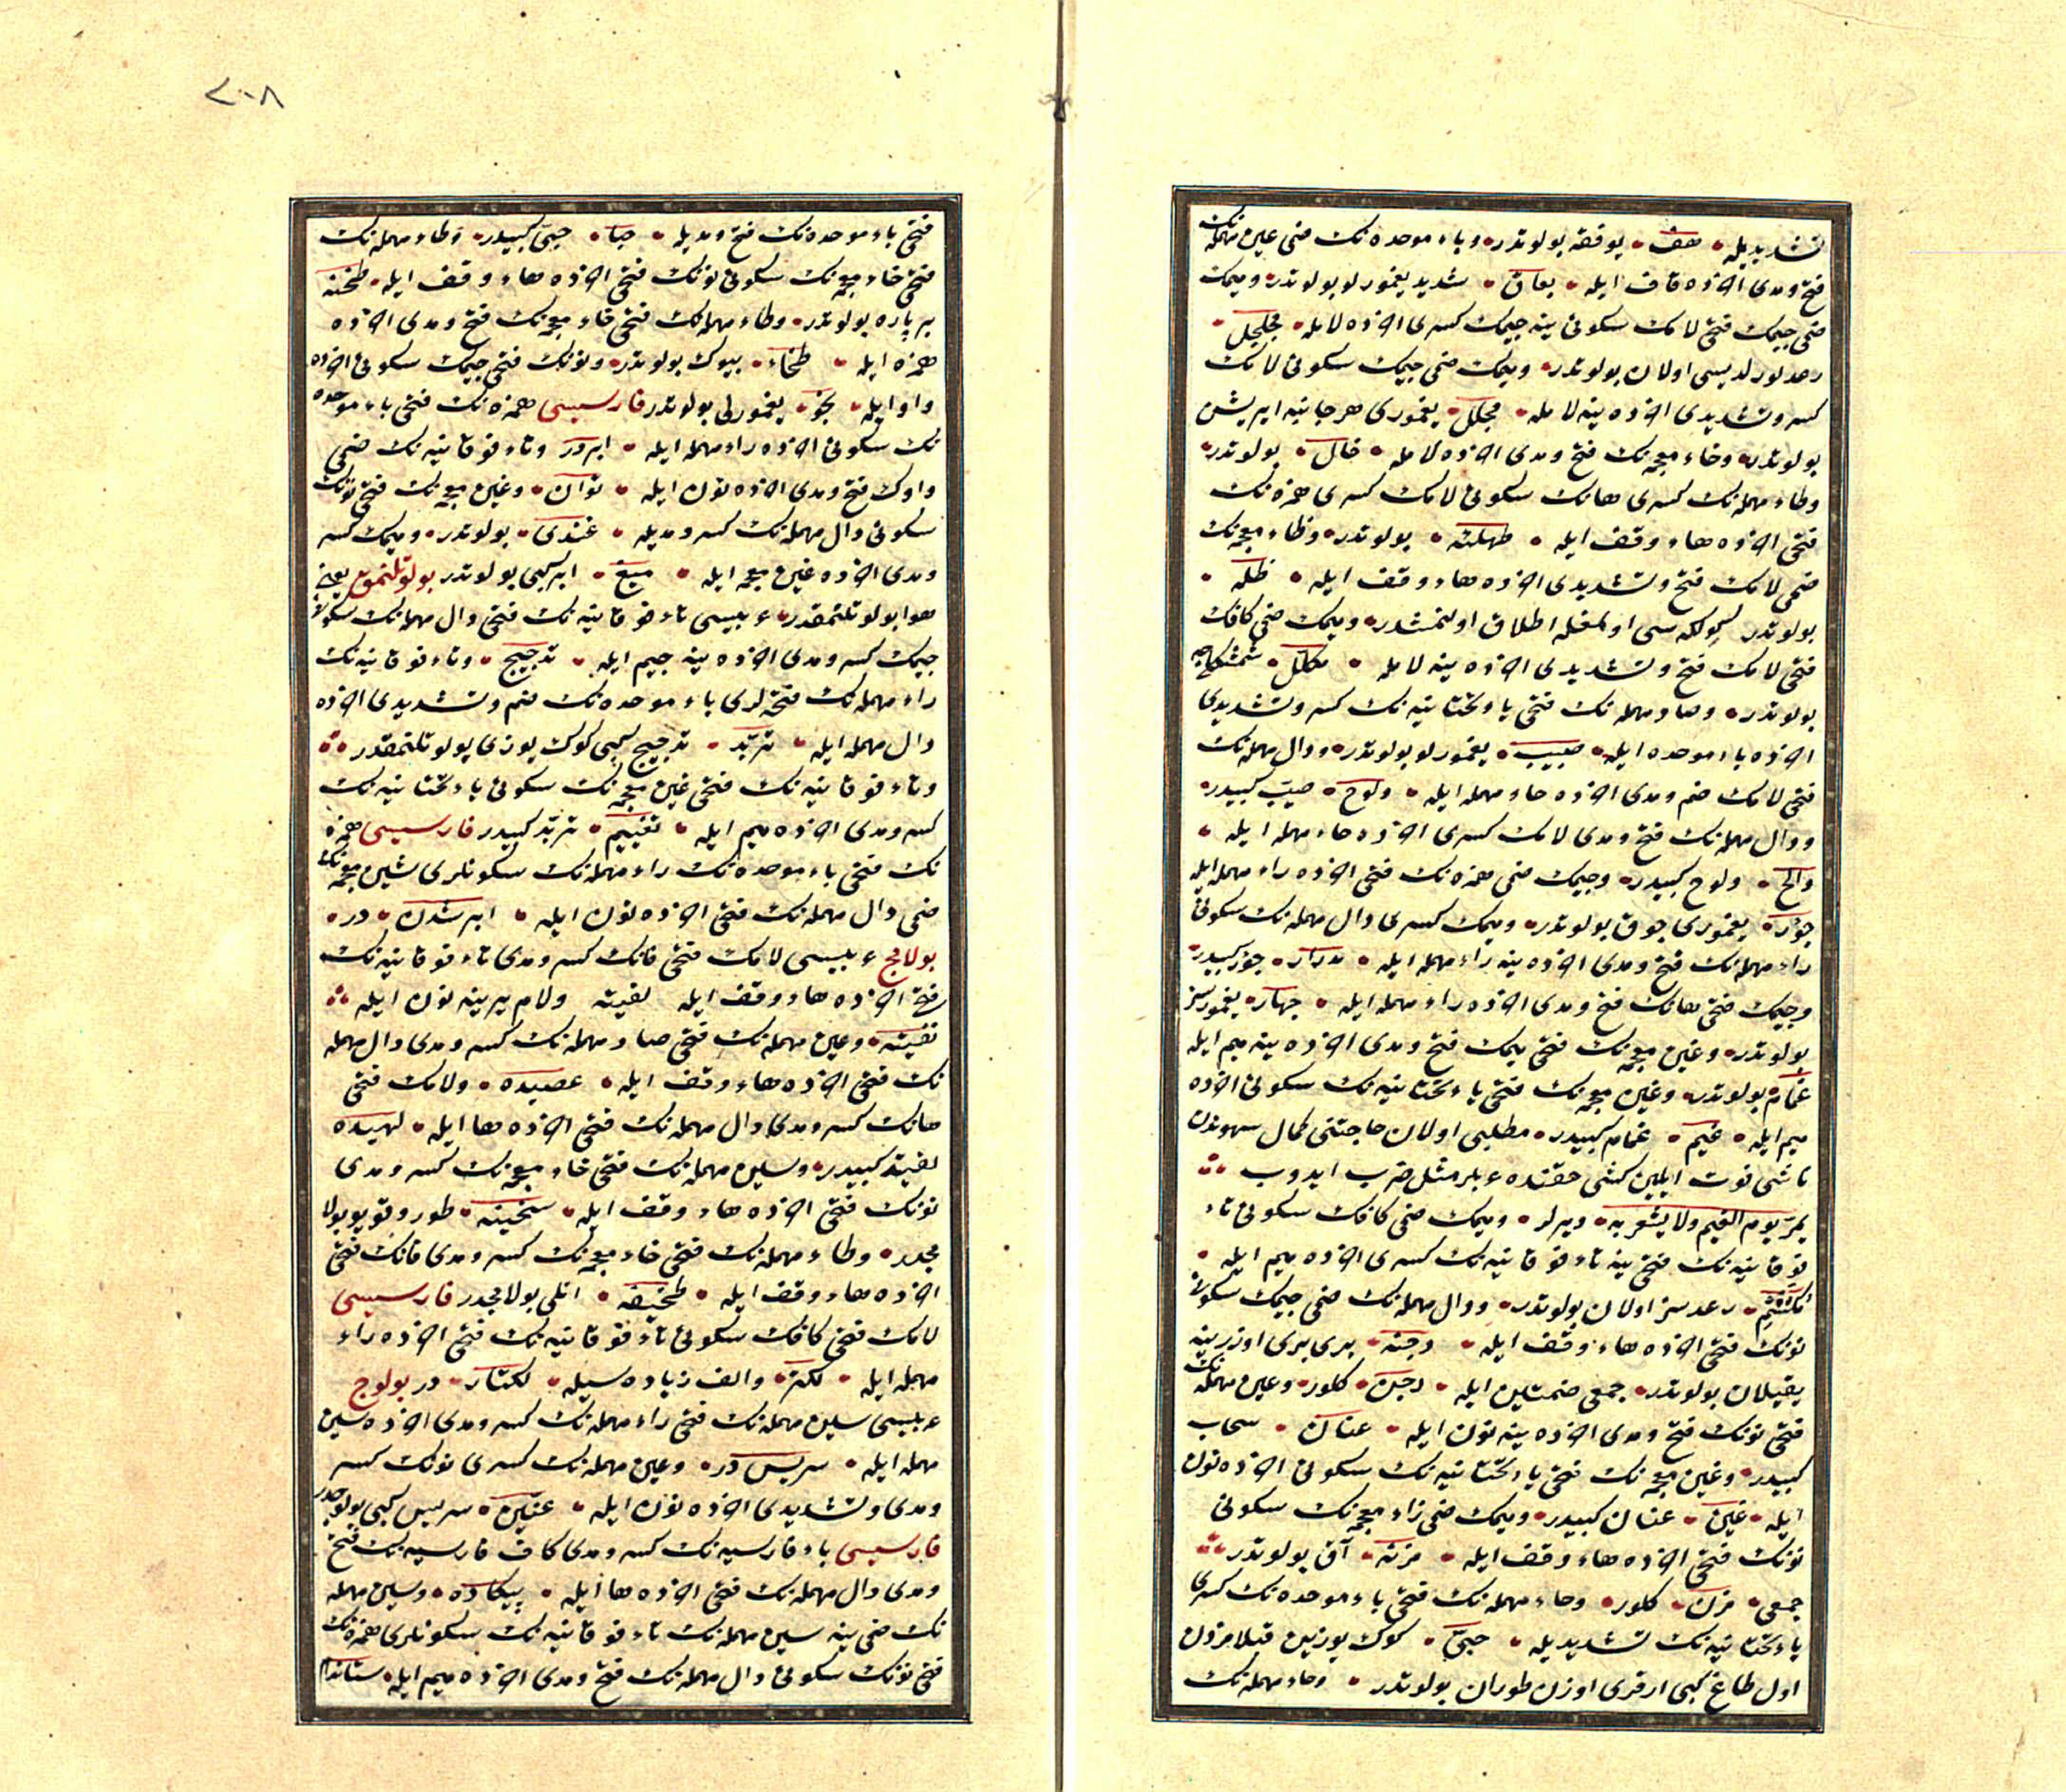 تشدیدیله هف یوفقه بولوتدر وباء موحده نک ضمی عین مهمله نک
فتح ومدی اخرنده قاف ایله بعاق شدید یغمورلو بولوتدر ومیمک
ضمی جیمک فتحی لامک سکونی ینه جیمک کسری اخرنده لامله مجلجل
رعد لورلدیسی اولان بولوتدر ومیمک ضمی جیمک سکونی لامک
کسر وتشدیدی اخرنده ینه لامله مجلل یغموری هر جانبه ایریشن
بولوتدر وخاء معجمه نک فتح ومدی اخرنده لامله خال بولوتدر
وطاء مهمله نک کسری هانک سکونی لامک کسری همزه نک
فتحی اخرنده هاء وقف ایله طهلئه بولوتدر وظاء معجمه نک
ضمی لامک فتح وتشدیدی اخرنده هاء وقف ایله ظله
بولوتدر کولکه سی اولمغله اطلاق اولنمشدر ومیمک ضمی کافک
فتحی لامک فتح وتشدیدی اخرنده ینه لامله مکلل
بولوتدر وصاد مهمله نک فتحی یاء تحتانیه نک کسر وتشدیدی
اخرنده باء موحده ایله صیب یغمورلو بولوتدر ودال مهمله نک
فتحی لامک ضم ومدی اخرنده حاء مهمله ایله دلوح صیب کبیدر
ودال مهمله نک فتح ومدی لامک کسری اخرنده حاء مهمله ایله
دالح دلوح کبیدر وجیمک ضمی همزه نک فتحی اخرنده راء مهمله ایله
جؤر یغموری چوق بولوتدر ومیمک کسری دال مهمله نک سکونی
راء مهمله نک فتح ومدی اخرنده ینه راء مهمله ایله مدرار جؤر کبیدر
وجیمک فتحی هانک فتح ومدی اخرنده راء مهمله ایله جهار یغمورسز
بولوتدر وغین معجمه نک فتحی میمک فتح ومدی اخرنده ینه میم ایله
غمام بولوتدر وغین معجمه نک فتحی یاء تحتانیه نک سکونی اخرنده
میم ایله غیم غمام کبیدر مطلبی اولان حاجتنی کمال سهوندن
ناشی فوت ایلین کشی حقنده عربلر مثل ضرب ایدوب
یمر یوم الغیم ولا یشعر به دیرلر ومیمک ضمی کافک سکونی تاء
فوقانیه نک فتحی ینه تاء فوقانیه نک کسری اخرنده میم ایله
مکتتم رعدسز اولان بولوتدر ودال مهمله نک ضمی جیمک سکونی
نونک فتحی اخرنده هاء وقف ایله دجنه بری بری اوزرینه
یغیلان بولوتدر جمعی ضمتین ایله دجن کلور وعین مهمله نک
فتحی نونک فتح ومدی اخرنده ینه نون ایله عنان سحاب
کبیدر وغین معجمه نک فتحی یاء تحتانیه نک سکونی اخرنده نون
ایله غین عنان کبیدر ومیمک ضمی زاء معجمه نک سکونی
نونک فتحی اخرنده هاء وقف ایله مزنه آق بولوتدر
جمعی مزن کلور وحاء مهمله نک فتحی باء موحده نک کسری
یاء تحتانیه نک تشدیدیله حبی کوک یوزین قبلامزدن
اول طاغ کبی ارقری اوزن طوران بولوتدر وحاء مهمله نک
فتحی باء موحده نک فتح ومدیله حبا حبی کبیدر وطاء مهمله نک
فتحی خاء معجمه نک سکونی نونک فتحی اخرنده هاء وقف ایله طخنه
بر پاره بولوتدر وطاء مهمله نک فتحی خاء معجمه نک فتح ومدی اخرنده
همزه ایله طخاء بیوک بولوتدر ونونک فتحی جیمک سکونی اخرنده
واو ایله نجو یغمورلی بولوتدر فارسیسی همزه نک فتحی باء موحده
نک سکونی اخرنده راء مهمله ایله ابر در وتاء فوقانیه نک ضمی
واوک فتح ومدی اخرنده نون ایله توان وغین معجمه نک فتحی نونک
سکونی دال مهمله نک کسر ومدیله غندی بولوتدر ومیمک کسر
ومدی اخرنده غین معجمه ایله میغ ابر کبی بولوتدر بولوتلنمق یعنی
هوا بولوتلنمقدر عربیسی تاء فوقانیه نک فتحی دال مهمله نک سکونی
جیمک کسر ومدی اخرنده ینه جیم ایله تدجیج وتاء فوقانیه نک
راء مهمله نک فتحه لری باء موحده نک ضم وتشدیدی اخرنده
دال مهمله ایله تربد تدجیج کبی کوک یوزی بولوتلنمقدر
وتاء فوقانیه نک فتحی غین معجمه نک سکونی یاء تحتانیه نک
کسر ومدی اخرنده میم ایله تغییم تربد کبیدر فارسیسی همزه
نک فتحی باء موحده نک راء مهمله نک سکونلری شین معجمه نک
ضمی دال مهمله نک فتحی اخرنده نون ایله ابر شدن در
بولامج عربیسی لامک فتحی فانک کسر ومدی تاء فوقانیه نک
فتح اخرنده هاء وقف ایله لفیته ولام یرینه نون ایله
نفیته وعین مهمله نک فتحی صاد مهمله نک کسر ومدی دال مهمله
نک فتحی اخرنده هاء وقف ایله عصیده ولامک فتحی
هانک کسر ومدی دال مهمله نک فتحی اخرنده ها ایله لهیده
لفیته کبیدر وسین مهمله نک فتحی خاء معجمه نک کسر ومدی
نونک فتحی اخرنده هاء وقف ایله سخینه طورو قویو بولا
مجدر وطاء مهمله نک فتحی خاء معجمه نک کسر ومدی فانک فتحی
اخرنده هاء وقف ایله طخیفه اتلی بولامجدر فارسیسی
لامک فتحی کافک سکونی تاء فوقانیه نک فتحی اخرنده راء
مهمله ایله لکتر والف زیاده سیله لکتار در بولوج
عربیسی سین مهمله نک فتحی راء مهمله نک کسر ومدی اخرنده سین
مهمله ایله سریس در وعین مهمله نک کسری نونک کسر
ومدی وتشدیدی اخرنده نون ایله عنین سریس کبی بولوجدر
فارسیسی باء فارسیه نک کسر ومدی کاف فارسیه نک فتح
ومدی دال مهمله نک فتحی اخرنده ها ایله بیکاده وسین مهمله
نک ضمی ینه سین مهمله نک تاء فوقانیه نک سکونلری همزه نک
فتحی نونک سکونی دال مهمله نک فتح ومدی اخرنده میم ایله
٢٠٨